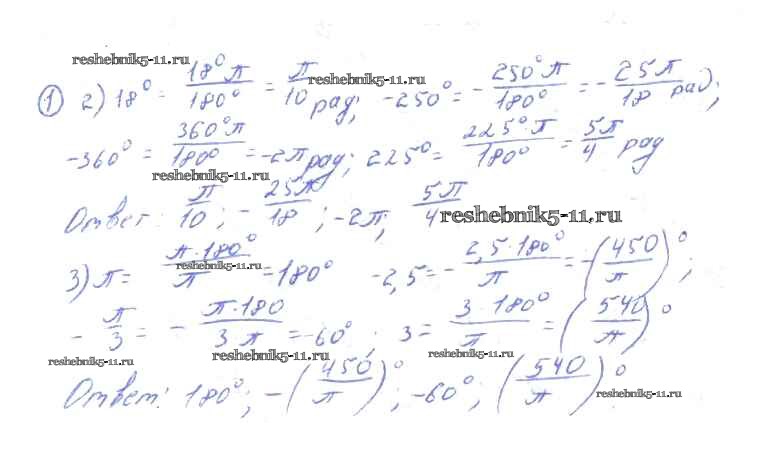 reshebnik5-11.ru
① 2) 18° = 18°π/180° = π/10 рад; reshebnik5-11.ru -250° = -250°π/180° = -25π/18 рад;
-360° = 360°π/180° = -2π рад; 225° = 225°·π/180° = 5π/4 рад
reshebnik5-11.ru
Ответ: π/10; -25π/18; -2π; 5π/4 reshebnik5-11.ru
3) π = π·180°/π = 180° reshebnik5-11.ru -2,5 = -2,5·180°/π = -(450/π)°;
-π/3 = -π·180/3π = -60°. 3 = 3·180°/π = (540/π)°
reshebnik5-11.ru reshebnik5-11.ru reshebnik5-11.ru
Ответ: 180°; -(450/π)°; -60°; (540/π)° reshebnik5-11.ru